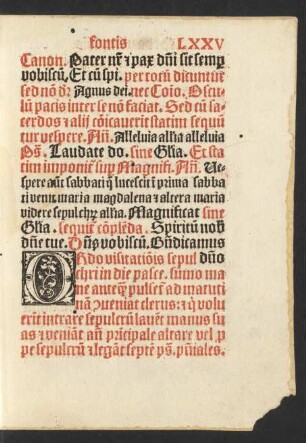 fontis LXXV
Canon. Pater nr̄ ⁊ pax dn̄i sit semp̲
vobiscū. Et cū spi. per totū dicuntur
sed nō dr̄ Agnus dei. nec Coīo. Oscu-
lū pacis inter se nō faciāt. Sed cū sa-
cerdos ⁊ alij cōicauerīt statim sequū
tur vespere. Añ. Alleluia alīa alleluia
Ps̄. Laudate do. sine Glīa. Et sta
tim imponit᷑ sup Magnifi. Añ. Ve-
spere aūt sabbati q̄ lucescit ī prima sabba
ti venit maria magdalena ⁊ altera maria
videre sepulchꝝ alīa. Magnificat sine
Glīa. sequit᷑ cōplēda. Spiritū nob̄
dn̄e tue. Dn̄s vobiscū. Bn̄dicamus
ORdo visitatiōis sepul dn̄o
chri in die pasce. summo ma
ne anteq̄ pulset᷑ ad matuti
nā ↄueniat clerus: ⁊ q̄ volu
erīt intrare sepulcrū lauēt manus su
as ⁊ veniāt an̄ p̄ncipale altare vel p̲
pe sepulcrū ⁊ legāt septē ps̄. pn̄iales.